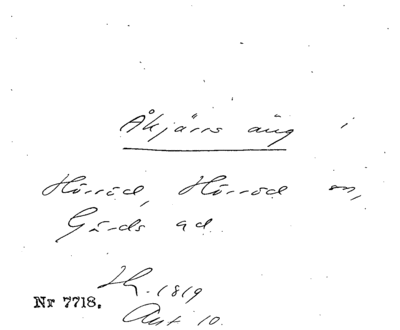 Åkjärrs äng i
Hörröd, Hörröd sn,
Gärds hd.
Lk. 1819
Nr 7718.
Akt 10.